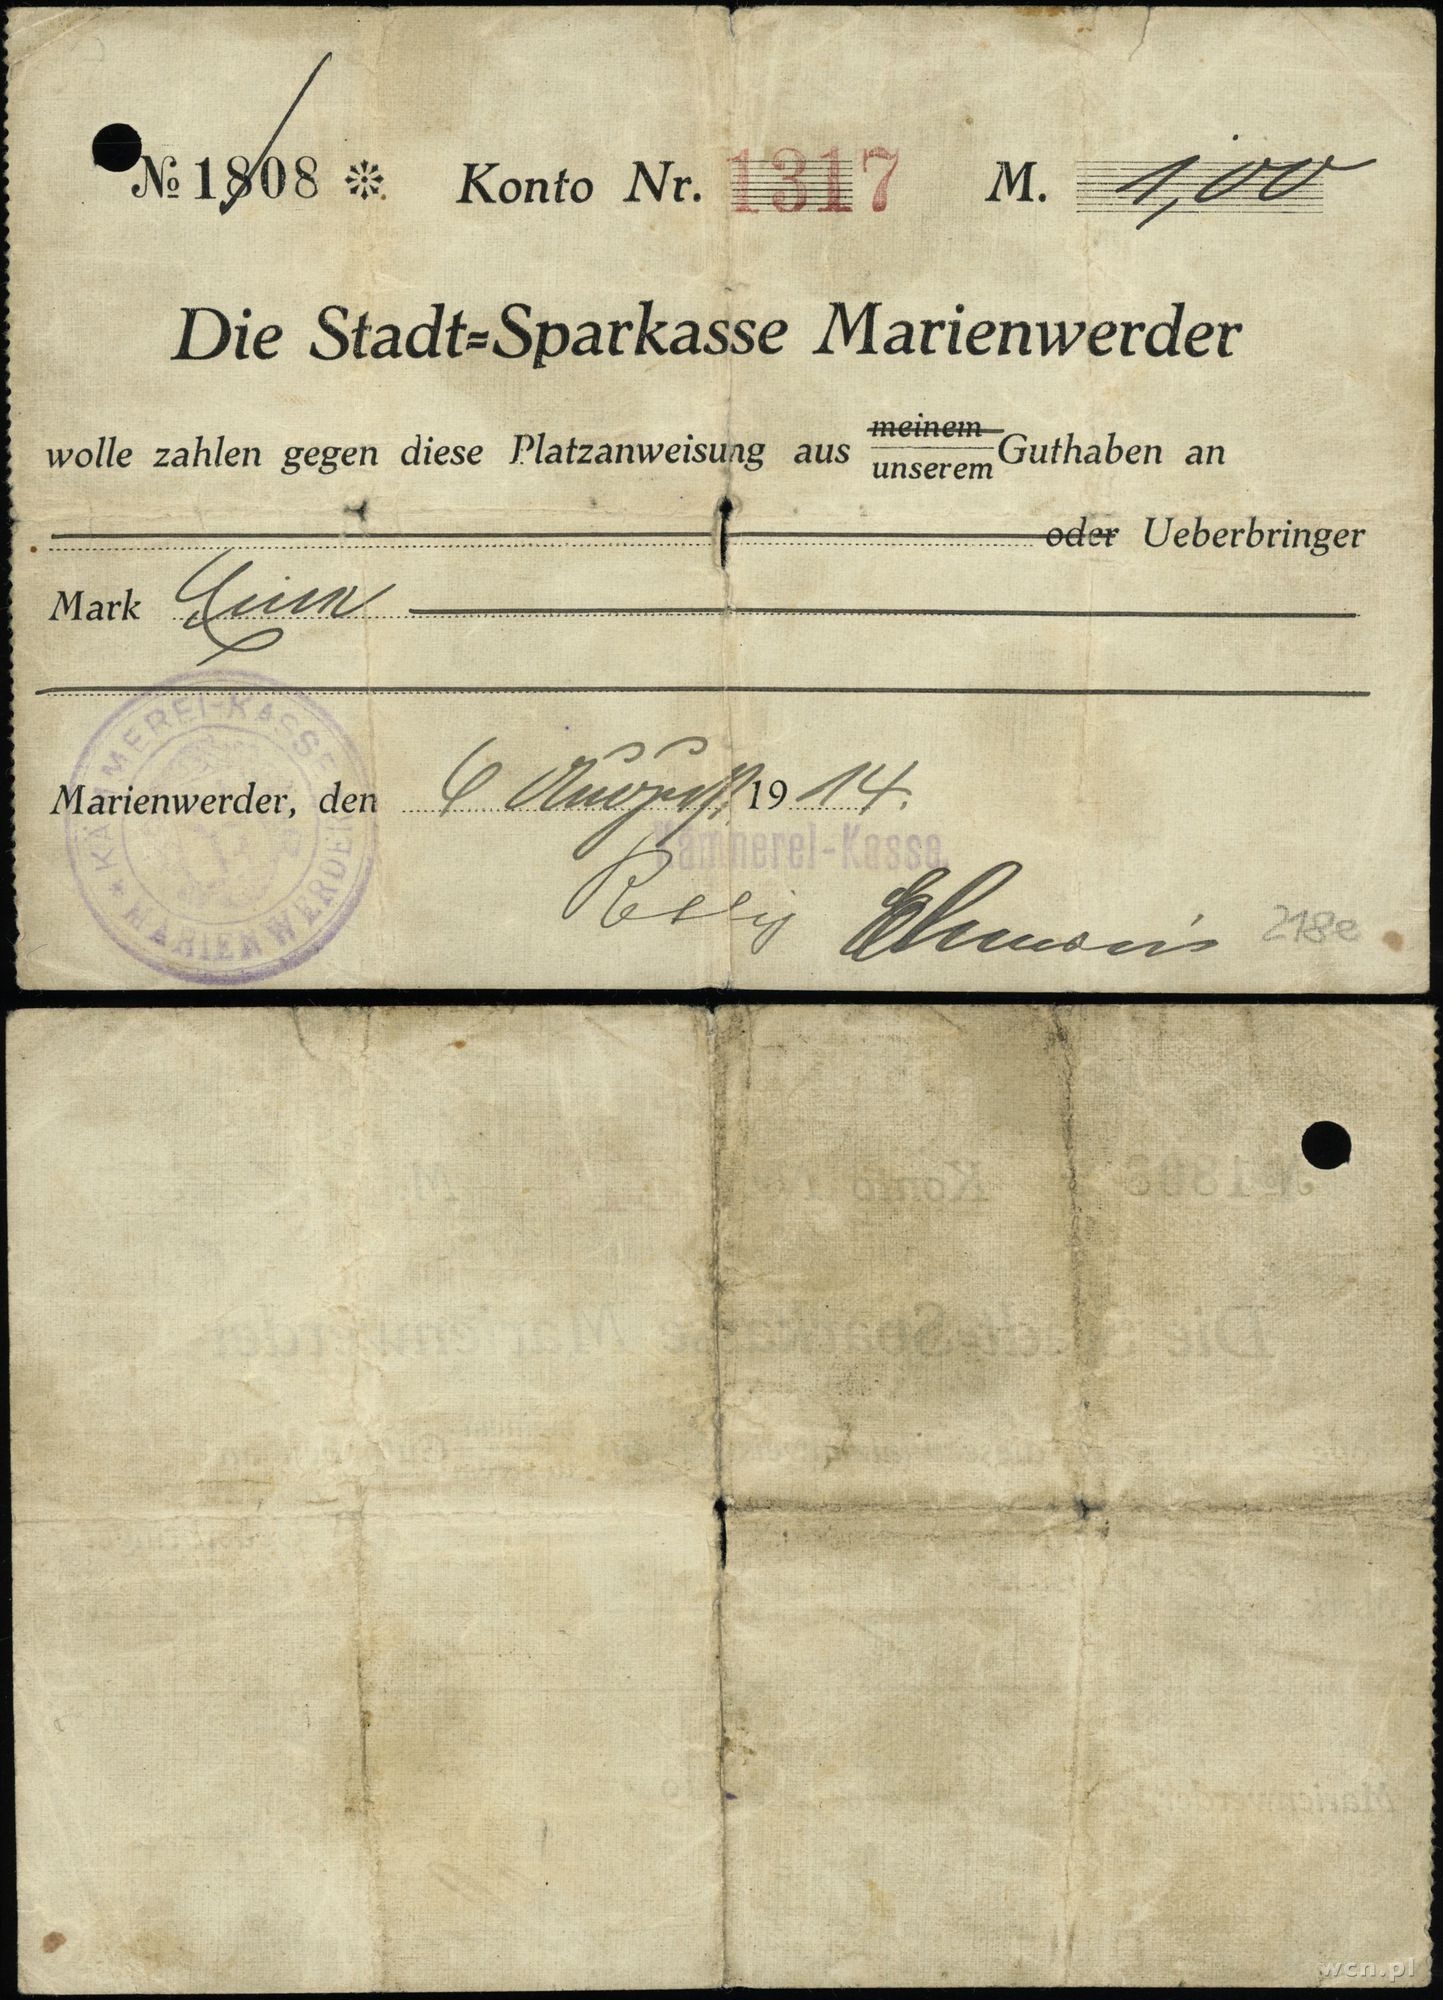 № 1808 ❊ Konto Nr. 1317 M. 1,00
Die Stadt=Sparkasse Marienwerder
wolle zahlen gegen diese Platzanweisung aus meinem
unserem Guthaben an
oder Ueberbringer
Mark Eine
Marienwerder, den 6 August 1914.
Kämmerei-Kasse.
* KÄMMEREI-KASSE * MARIENWERDER
218e
wcn.pl